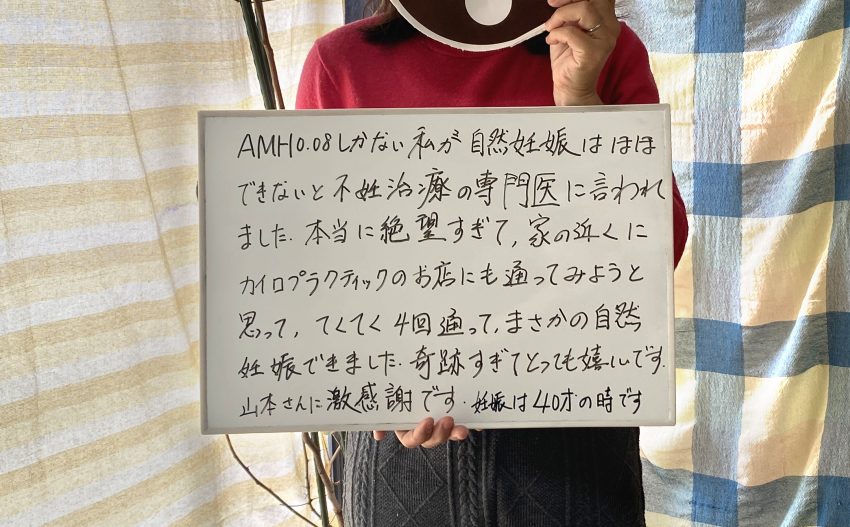 AMH0.08しかない私が自然妊娠はほぼ
できないと不妊治療の専門医に言われ
ました.本当に絶望すぎて,家の近くに
カイロプラクティックのお店にも通ってみようと
思って,てくてく4回通って,まさかの自然
妊娠できました.奇跡すぎてとっても嬉しいです.
山本さんに激感謝です.妊娠は40才の時です